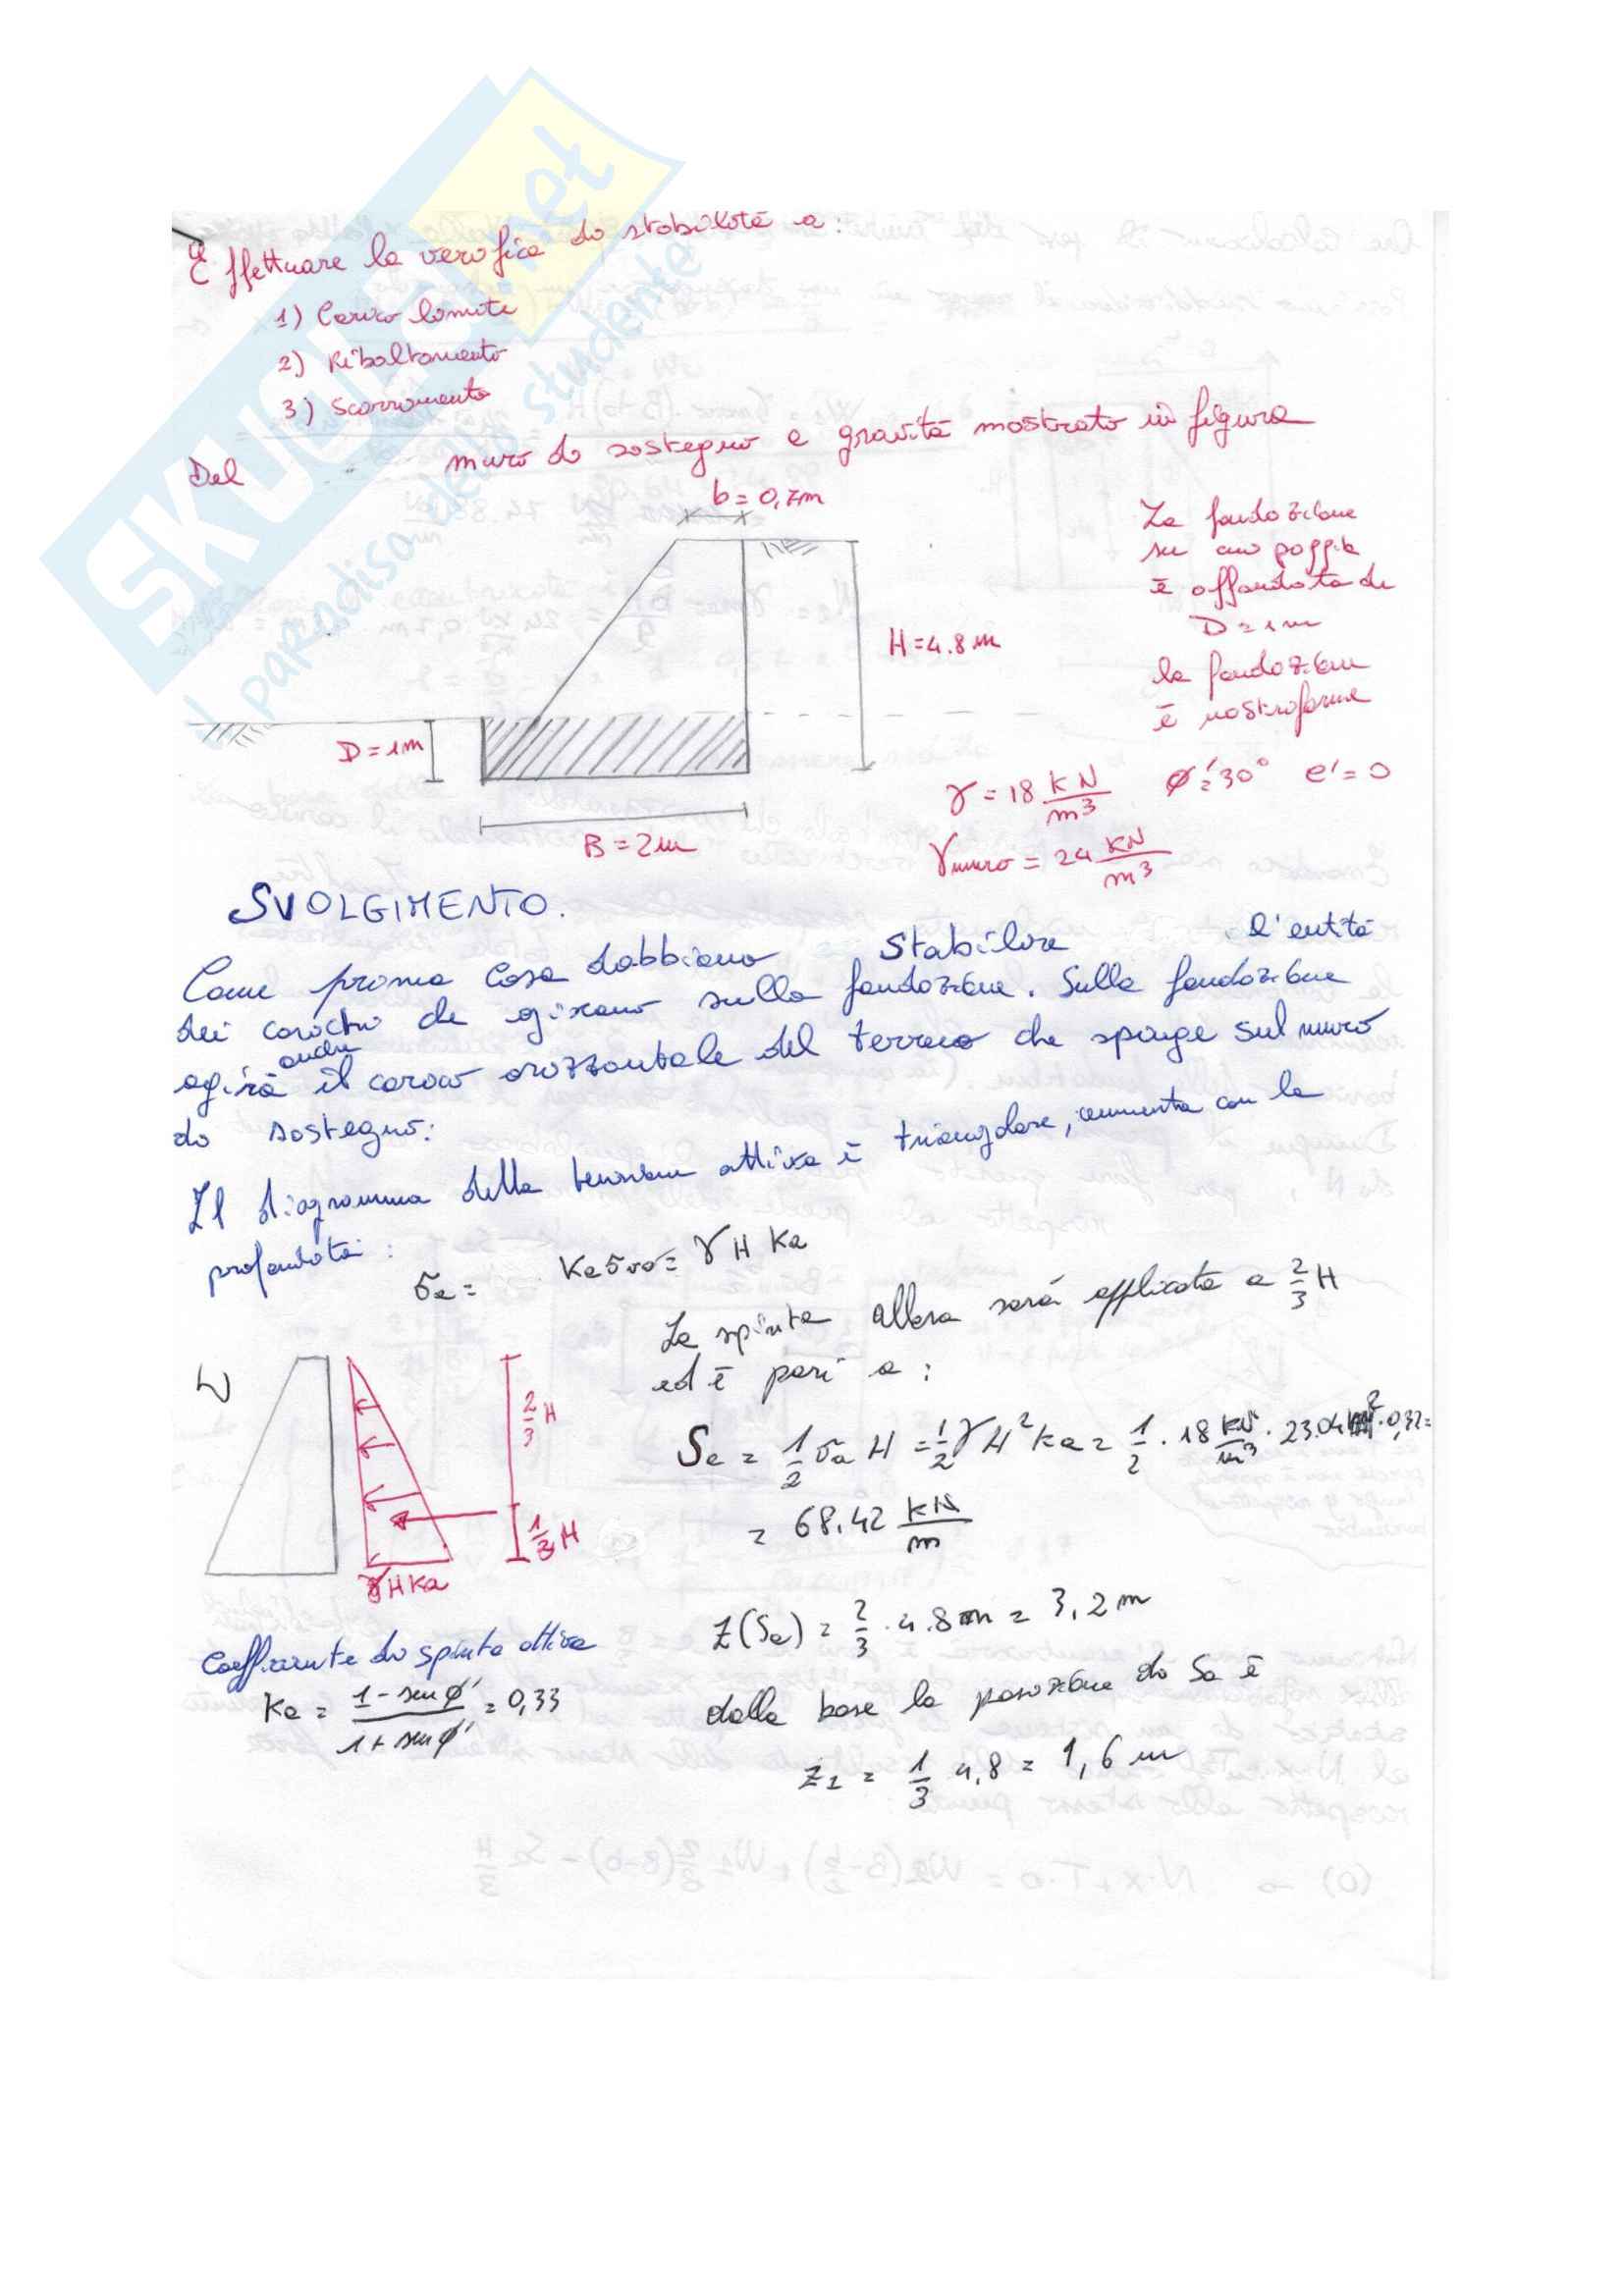 SKUOLA.net
il paradiso dello studente
Effettuare la verifica di stabilità a:
1) Carico limite
2) Ribaltamento
3) Scorrimento
Del muro di sostegno a gravità mostrato in figura
b = 0,7m
La fondazione
su cui poggia
è affondata di
D = 1m
la fondazione
è nastriforme
H = 4.8 m
D = 1m
B = 2m
γ = 18 kN/m³ φ' = 30° c' = 0
γmuro = 24 kN/m³
SVOLGIMENTO.
Come prima cosa dobbiamo stabilire l'entità
dei carichi che agiscono sulla fondazione. Sulla fondazione
agirà anche il carico orizzontale del terreno che spinge sul muro
di sostegno:
Il diagramma della tensione attiva è triangolare, aumenta con la
profondità:
σa = Ka σvo = γ H Ka
La spinta allora sarà applicata a 2/3 H
ed è pari a:
2/3 H
1/3 H
γHKa
Sa = 1/2 σa H = 1/2 γ H² Ka = 1/2 · 18 kN/m³ · 23.04 m² · 0,33 =
= 68.42 kN/m
Z(Sa) = 2/3 · 4.8m = 3,2 m
Coefficiente di spinta attiva
Ka = (1 - sen φ')/(1 + sen φ') = 0,33
dalla base la posizione di Sa è
z1 = 1/3 4,8 = 1,6 m